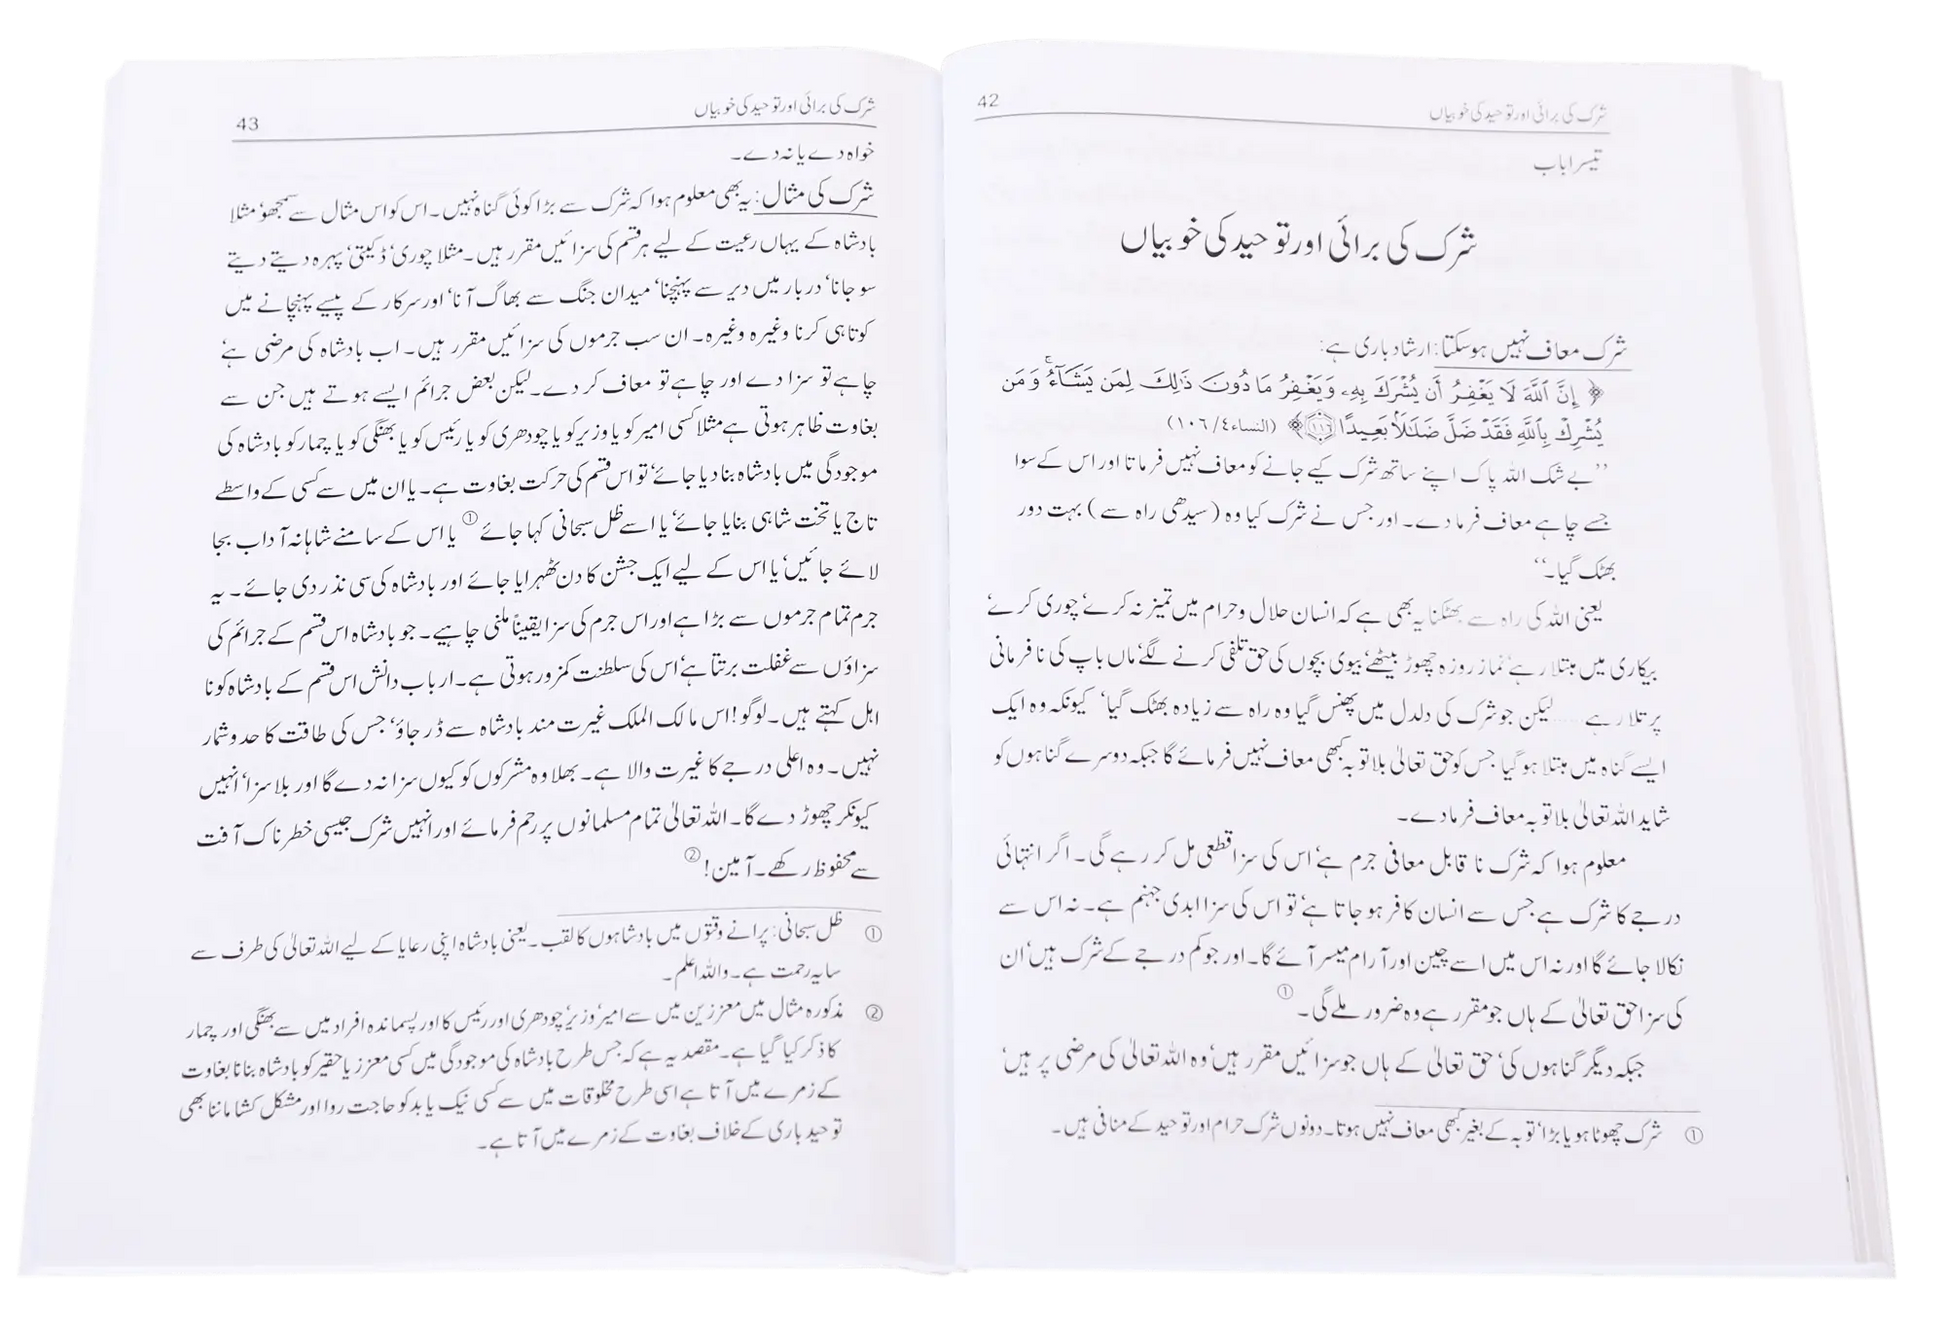 42
شرک کی برائی اور توحید کی خوبیاں
تیسرا باب
شرک کی برائی اور توحید کی خوبیاں
شرک معاف نہیں ہو سکتا: ارشاد باری ہے:
﴿ إِنَّ ٱللَّهَ لَا يَغْفِرُ أَن يُشْرَكَ بِهِۦ وَيَغْفِرُ مَا دُونَ ذَٰلِكَ لِمَن يَشَآءُ ۚ وَمَن
يُشْرِكْ بِٱللَّهِ فَقَدْ ضَلَّ ضَلَٰلًۢا بَعِيدًا ﴿١١٦﴾﴾ (النساء٤/ ١٠٦)
’’بے شک اللہ پاک اپنے ساتھ شرک کیے جانے کو معاف نہیں فرماتا اور اس کے سوا
جسے چاہے معاف فرما دے۔ اور جس نے شرک کیا وہ (سیدھی راہ سے) بہت دور
بھٹک گیا۔‘‘
یعنی اللہ کی راہ سے بھٹکنا یہ بھی ہے کہ انسان حلال و حرام میں تمیز نہ کرے‘ چوری کرے‘
بیکاری میں مبتلا رہے‘ نماز روزہ چھوڑ بیٹھے‘ بیوی بچوں کی حق تلفی کرنے لگے‘ ماں باپ کی نافرمانی
پر تلا رہے ..... لیکن جو شرک کی دلدل میں پھنس گیا وہ راہ سے زیادہ بھٹک گیا‘ کیونکہ وہ ایک
ایسے گناہ میں مبتلا ہو گیا جس کو حق تعالیٰ بلا توبہ کبھی معاف نہیں فرمائے گا جبکہ دوسرے گناہوں کو
شاید اللہ تعالیٰ بلا توبہ معاف فرما دے۔
معلوم ہوا کہ شرک نا قابل معافی جرم ہے‘ اس کی سزا قطعی مل کر رہے گی۔ اگر انتہائی
درجے کا شرک ہے جس سے انسان کافر ہو جاتا ہے‘ تو اس کی سزا ابدی جہنم ہے۔ نہ اس سے
نکالا جائے گا اور نہ اس میں اسے چین اور آرام میسر آئے گا۔ اور جو کم درجے کے شرک ہیں‘ ان
کی سزا حق تعالیٰ کے ہاں جو مقرر ہے وہ ضرور ملے گی۔ ①
جبکہ دیگر گناہوں کی‘ حق تعالیٰ کے ہاں جو سزائیں مقرر ہیں‘ وہ اللہ تعالیٰ کی مرضی پر ہیں‘
① شرک چھوٹا ہو یا بڑا‘ توبہ کے بغیر کبھی معاف نہیں ہوتا۔ دونوں شرک حرام اور توحید کے منافی ہیں۔
43
شرک کی برائی اور توحید کی خوبیاں
خواہ دے یا نہ دے۔
شرک کی مثال: یہ بھی معلوم ہوا کہ شرک سے بڑا کوئی گناہ نہیں۔ اس کو اس مثال سے سمجھو‘ مثلا
بادشاہ کے یہاں رعیت کے لیے ہر قسم کی سزائیں مقرر ہیں۔ مثلا چوری‘ ڈکیتی‘ پہرہ دیتے دیتے
سو جانا‘ دربار میں دیر سے پہنچنا‘ میدان جنگ سے بھاگ آنا‘ اور سرکار کے پیسے پہنچانے میں
کوتاہی کرنا وغیرہ وغیرہ۔ ان سب جرموں کی سزائیں مقرر ہیں۔ اب بادشاہ کی مرضی ہے‘
چاہے تو سزا دے اور چاہے تو معاف کر دے۔ لیکن بعض جرائم ایسے ہوتے ہیں جن سے
بغاوت ظاہر ہوتی ہے مثلا کسی امیر کو یا وزیر کو یا چودھری کو یا رئیس کو یا بھنگی کو یا چمار کو بادشاہ کی
موجودگی میں بادشاہ بنا دیا جائے‘ تو اس قسم کی حرکت بغاوت ہے۔ یا ان میں سے کسی کے واسطے
تاج یا تخت شاہی بنایا جائے‘ یا اسے ظل سبحانی کہا جائے ① یا اس کے سامنے شاہانہ آداب بجا
لائے جائیں‘ یا اس کے لیے ایک جشن کا دن ٹھہرایا جائے اور بادشاہ کی سی نذر دی جائے۔ یہ
جرم تمام جرموں سے بڑا ہے اور اس جرم کی سزا یقیناً ملنی چاہیے۔ جو بادشاہ اس قسم کے جرائم کی
سزاؤں سے غفلت برتتا ہے‘ اس کی سلطنت کمزور ہوتی ہے۔ ارباب دانش اس قسم کے بادشاہ کو نا
اہل کہتے ہیں۔ لوگو! اس مالک الملک غیرت مند بادشاہ سے ڈر جاؤ‘ جس کی طاقت کا حد و شمار
نہیں۔ وہ اعلی درجے کا غیرت والا ہے۔ بھلا وہ مشرکوں کو کیوں سزا نہ دے گا اور بلا سزا‘ انہیں
کیونکر چھوڑ دے گا۔ اللہ تعالیٰ تمام مسلمانوں پر رحم فرمائے اور انہیں شرک جیسی خطرناک آفت
سے محفوظ رکھے۔ آمین! ②
① ظل سبحانی: پرانے وقتوں میں بادشاہوں کا لقب۔ یعنی بادشاہ اپنی رعایا کے لیے اللہ تعالیٰ کی طرف سے
سایہ رحمت ہے۔ واللہ اعلم۔
② مذکورہ مثال میں معززین میں سے امیر‘ وزیر‘ چودھری اور رئیس کا اور پسماندہ افراد میں سے بھنگی اور چمار
کا ذکر کیا گیا ہے۔ مقصد یہ ہے کہ جس طرح بادشاہ کی موجودگی میں کسی معزز یا حقیر کو بادشاہ بنانا بغاوت
کے زمرے میں آتا ہے اسی طرح مخلوقات میں سے کسی نیک یا بد کو حاجت روا اور مشکل کشا ماننا بھی
توحید باری کے خلاف بغاوت کے زمرے میں آتا ہے۔